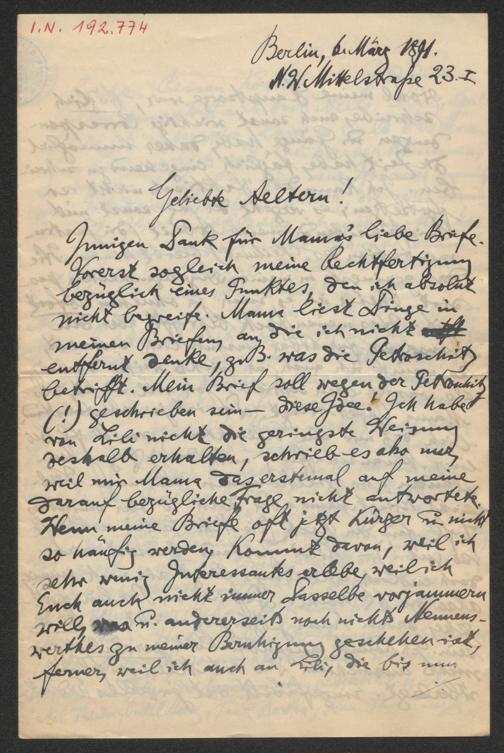 I.N. 192.774
Berlin, 6. März 1891.
N.W. Mittelstraße 23. I
Geliebte Aeltern!
Innigen Dank für Mama's liebe Briefe.
Vorerst sogleich meine Rechtfertigung
bezüglich eines Punktes, den ich absolut
nicht begreife. Mama liest Dinge in
meinen Briefen, an die ich nicht
entfernt denke, z. B. was die Petroschitz
betrifft. Mein Brief soll wegen der Petroschitz
(!) geschrieben sein — diese Idee! Ich habe
von Lili nicht die geringste Weisung
deshalb erhalten, schrieb es also nur,
weil mir Mama das erstemal auf meine
darauf bezügliche Frage nicht antwortete.
Wenn meine Briefe oft jetzt kürzer u. nicht
so häufig werden, kommt davon, weil ich
sehr wenig Interessantes erlebe, weil ich
Euch auch nicht immer dasselbe vorjammern
will, u. andererseits noch nichts Nennens-
werthes zu meiner Beruhigung geschehen ist,
ferner, weil ich auch an Lili, die bis nun